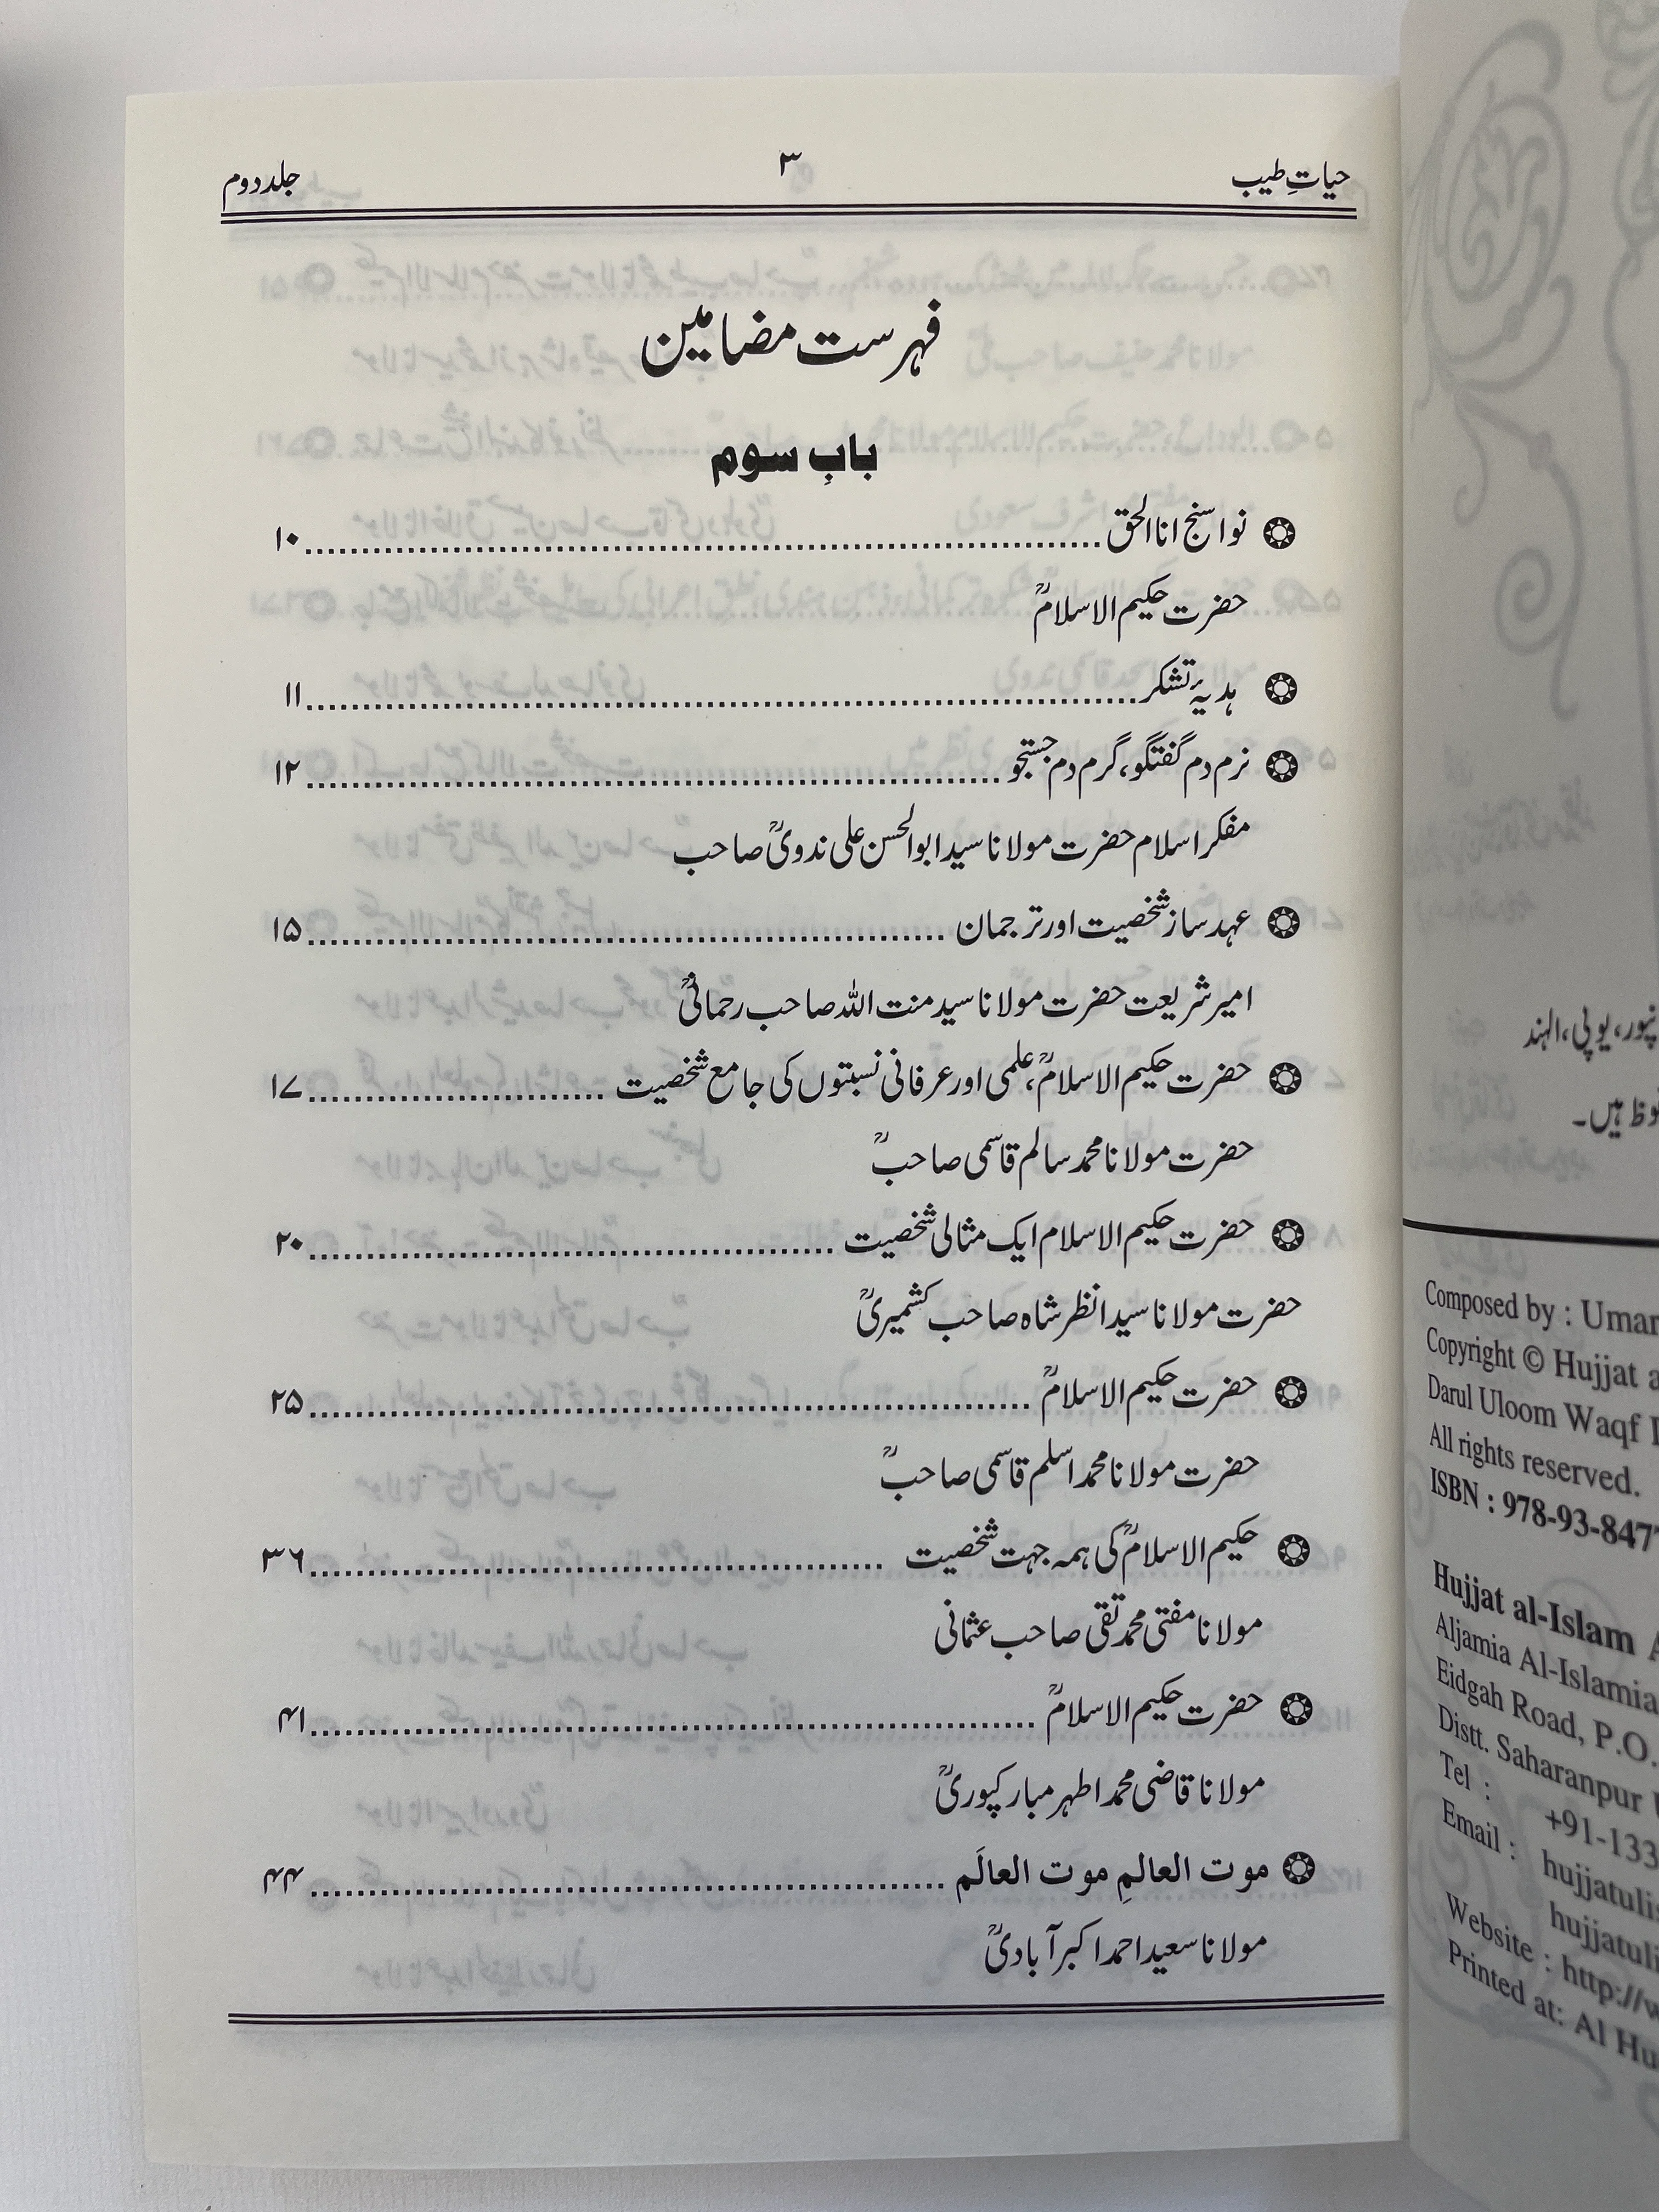 حیاتِ طیب
۳
جلد دوم
فہرست مضامین
بابِ سوم
نوا سنج انا الحق ۱۰
حضرت حکیم الاسلامؒ
ہدیۂ تشکر ۱۱
نرم دم گفتگو، گرم دم جستجو ۱۲
مفکر اسلام حضرت مولانا سید ابوالحسن علی ندویؒ صاحب
عہد ساز شخصیت اور ترجمان ۱۵
امیر شریعت حضرت مولانا سید منت اللہ صاحب رحمانیؒ
حضرت حکیم الاسلامؒ، علمی اور عرفانی نسبتوں کی جامع شخصیت ۱۷
حضرت مولانا محمد سالم قاسمی صاحبؒ
حضرت حکیم الاسلام ایک مثالی شخصیت ۲۰
حضرت مولانا سید انظر شاہ صاحب کشمیریؒ
حضرت حکیم الاسلامؒ ۲۵
حضرت مولانا محمد اسلم قاسمی صاحبؒ
حکیم الاسلامؒ کی ہمہ جہت شخصیت ۳۶
مولانا مفتی محمد تقی صاحب عثمانی
حضرت حکیم الاسلامؒ ۴۱
مولانا قاضی محمد اطہر مبارکپوریؒ
موت العالمِ موت العالَم ۴۴
مولانا سعید احمد اکبر آبادیؒ
یوپی، الہند
ہیں۔
Composed by : Umar
Copyright © Hujjat
Darul Uloom Waqf
All rights reserved.
ISBN : 978-93-847
Hujjat al-Islam
Aljamia Al-Islamia
Eidgah Road, P.O.
Distt. Saharanpur
Tel : +91-133
Email : hujjatulis
hujjatuli
Website : http://w
Printed at: Al Hu